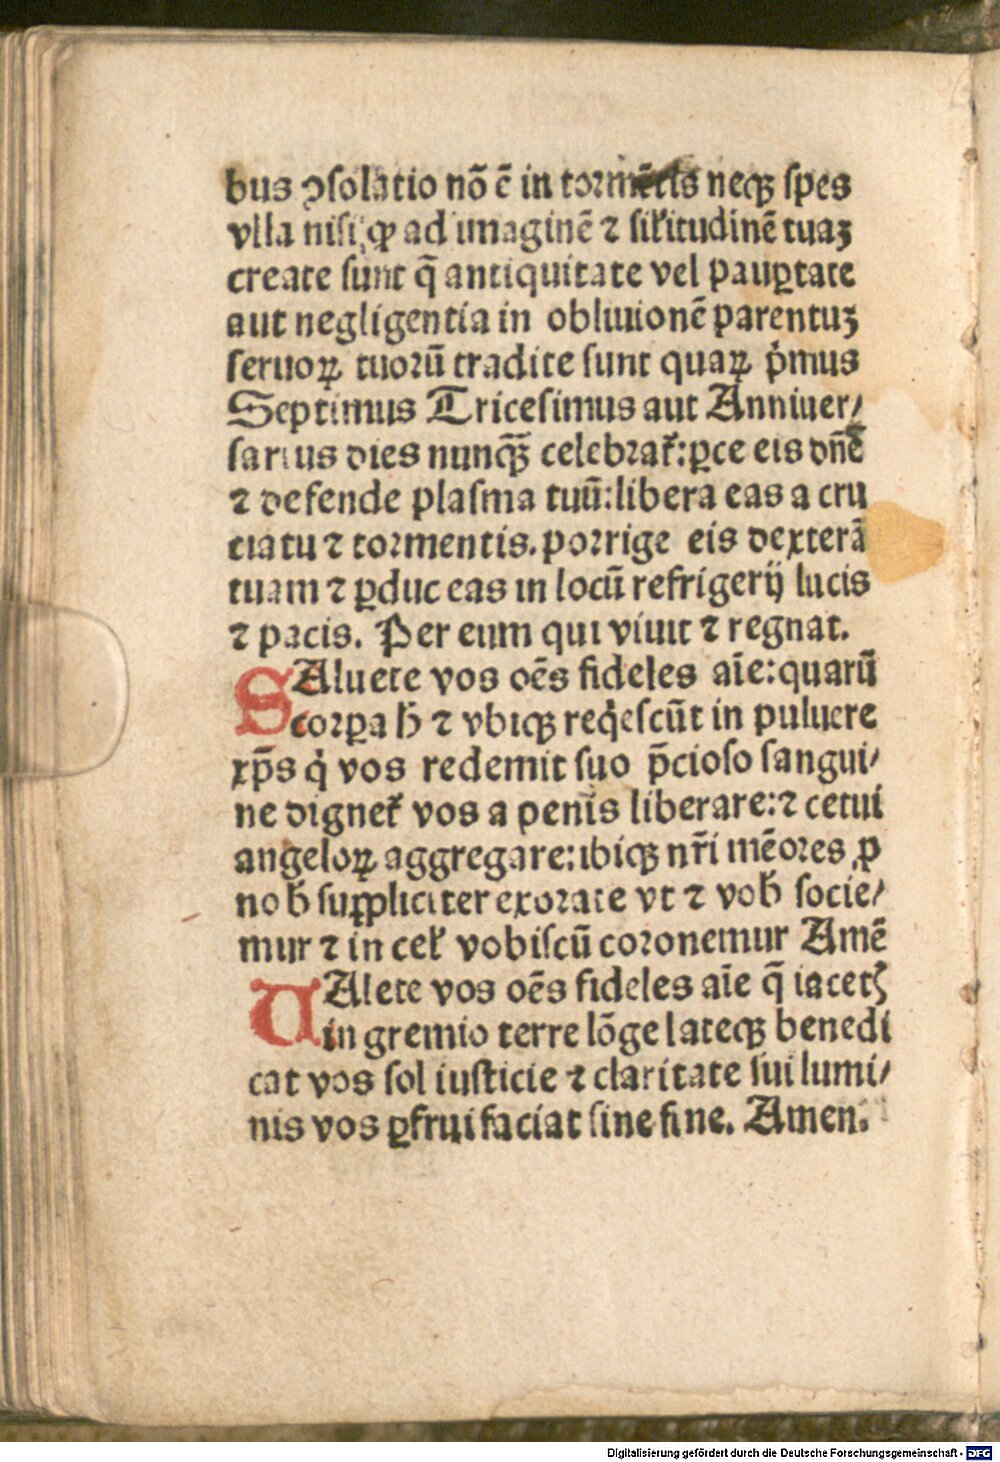 bus ꝯsolatio nō ē in tormētis neqꝫ spes
vlla nisi ꝙ ad imaginē ⁊ sil'itudinē tuaꝫ
create sunt q̄ antiquitate vel pauꝑtate
aut negligentia in obliuionē parentuꝫ
seruoꝝ tuorū tradite sunt quaꝝ p̓mus
Septimus Tricesimus aut Anniuer/
sarius dies nunqꝫ̄ celebrat᷑: ꝑce eis dn̄e
⁊ defende plasma tuū: libera eas a cru
ciatu ⁊ tormentis. porrige eis dexterā
tuam ⁊ ꝑduc eas in locū refrigerij lucis
⁊ pacis. Per eum qui viuit ⁊ regnat.
SAluete vos oēs fideles aīe: quarū
corꝑa h̓ ⁊ vbiqꝫ req̓escūt in puluere
xp̄s q̓ vos redemit suo p̄cioso sangui/
ne dignet᷑ vos a penis liberare: ⁊ cetui
angeloꝝ aggregare: ibiqꝫ nr̄i mēores ꝓ
nob̓ supꝑliciter exorate vt ⁊ vob̓ socie/
mur ⁊ in cel' vobiscū coronemur Amē
UAlete vos oēs fideles aīe q̄ iacetꝭ
in gremio terre lōge lateqꝫ benedi
cat vos sol iusticie ⁊ claritate sui lumi/
nis vos ꝑfrui faciat sine fine. Amen.
Digitalisierung gefördert durch die Deutsche Forschungsgemeinschaft - DFG